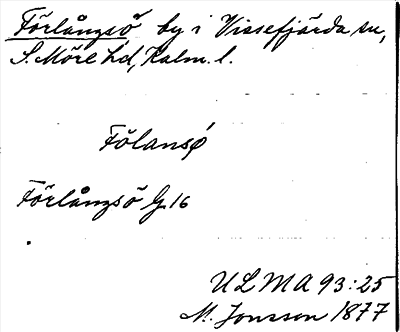 Förlångsö by i Vissefjärda sn,
S. Möre hd, Kalm. l.
Fölansǿ
Förlångsö G 16
ULMA 93:25
M. Jonsson 1877